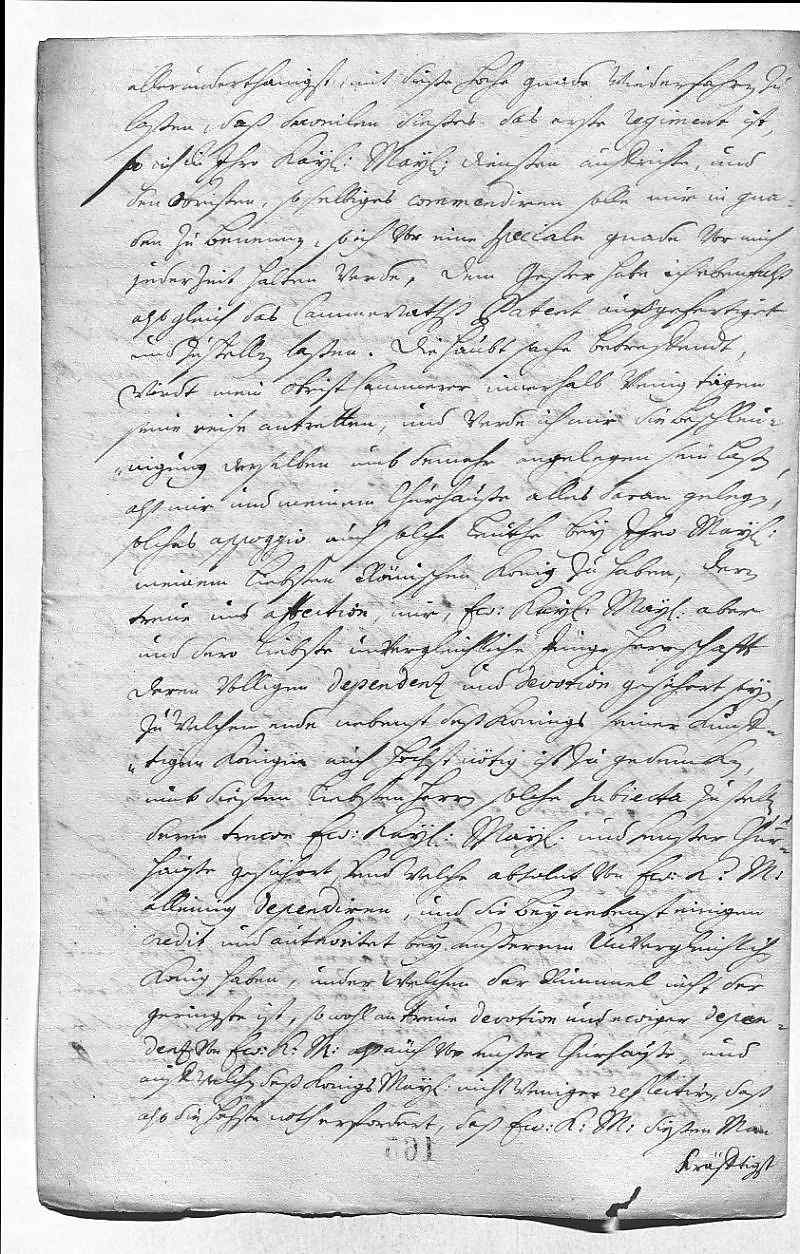 allerunderthänigst, mit dieße hohe gnade wiederfahren zu
laßen, daß deweilen dießes das erste regiment ist,
so ich zu Ihro Kayl: Mayl: diensten aufrichte, und
den Obristen, so selbiges commendiren solle mir in gna-
den zu benennen, so ich vor eine speciale gnade vor mich
jederzeit halten werde, dem habe ich ebenfalß
alsogleich das Cammerraths Patent außgefertiget
und zustellen laßen. Die haubt sache betreffendt,
wirdt mein Obrist Cammerer innerhalb wenig tägen
seine reise antretten, und werde ich mir die beschleu-
nigung derselben umb demehr angelegen sein laßen,
als mir und meinem Churhauße alles daran gelegen,
solches appoggio auch solche leuthe bey Ihro Mayl:
meinem liebsten Römischen König zu haben, deren
treue und affection, mir, Ew: Kayl: Mayl: aber
und dero liebste unvergleichliche junge herrschafft
deren völligen dependenz und devotion gesichert sey,
zu welchem ende nebenst deß Königs seiner künff-
tigen Königin auch höchst nötig ist zu gedencken,
umb dießen liebsten herrn solche subiecta zu stellen
deren trewe Ew: Kayl: Mayl: und unßer Chur-
hauße gesichert, undt welche absolut von Ew: K: M:
alleinig dependiren, und die beynebenst einigen
credit und authoritet bey unßerem unvergleichlich
König haben, under welchen der Rümmel nicht der
geringste ist, so wohl an treue devotion und ewiger depen-
denz von Ew: K: M: als auch vor unßer Churhauße, und
auf welchen deß Königs Mayl: nicht weniger reflectiren, daß
also die höchste noth erfordert, daß Ew: K: M: dießen Man
kräfftigst
165